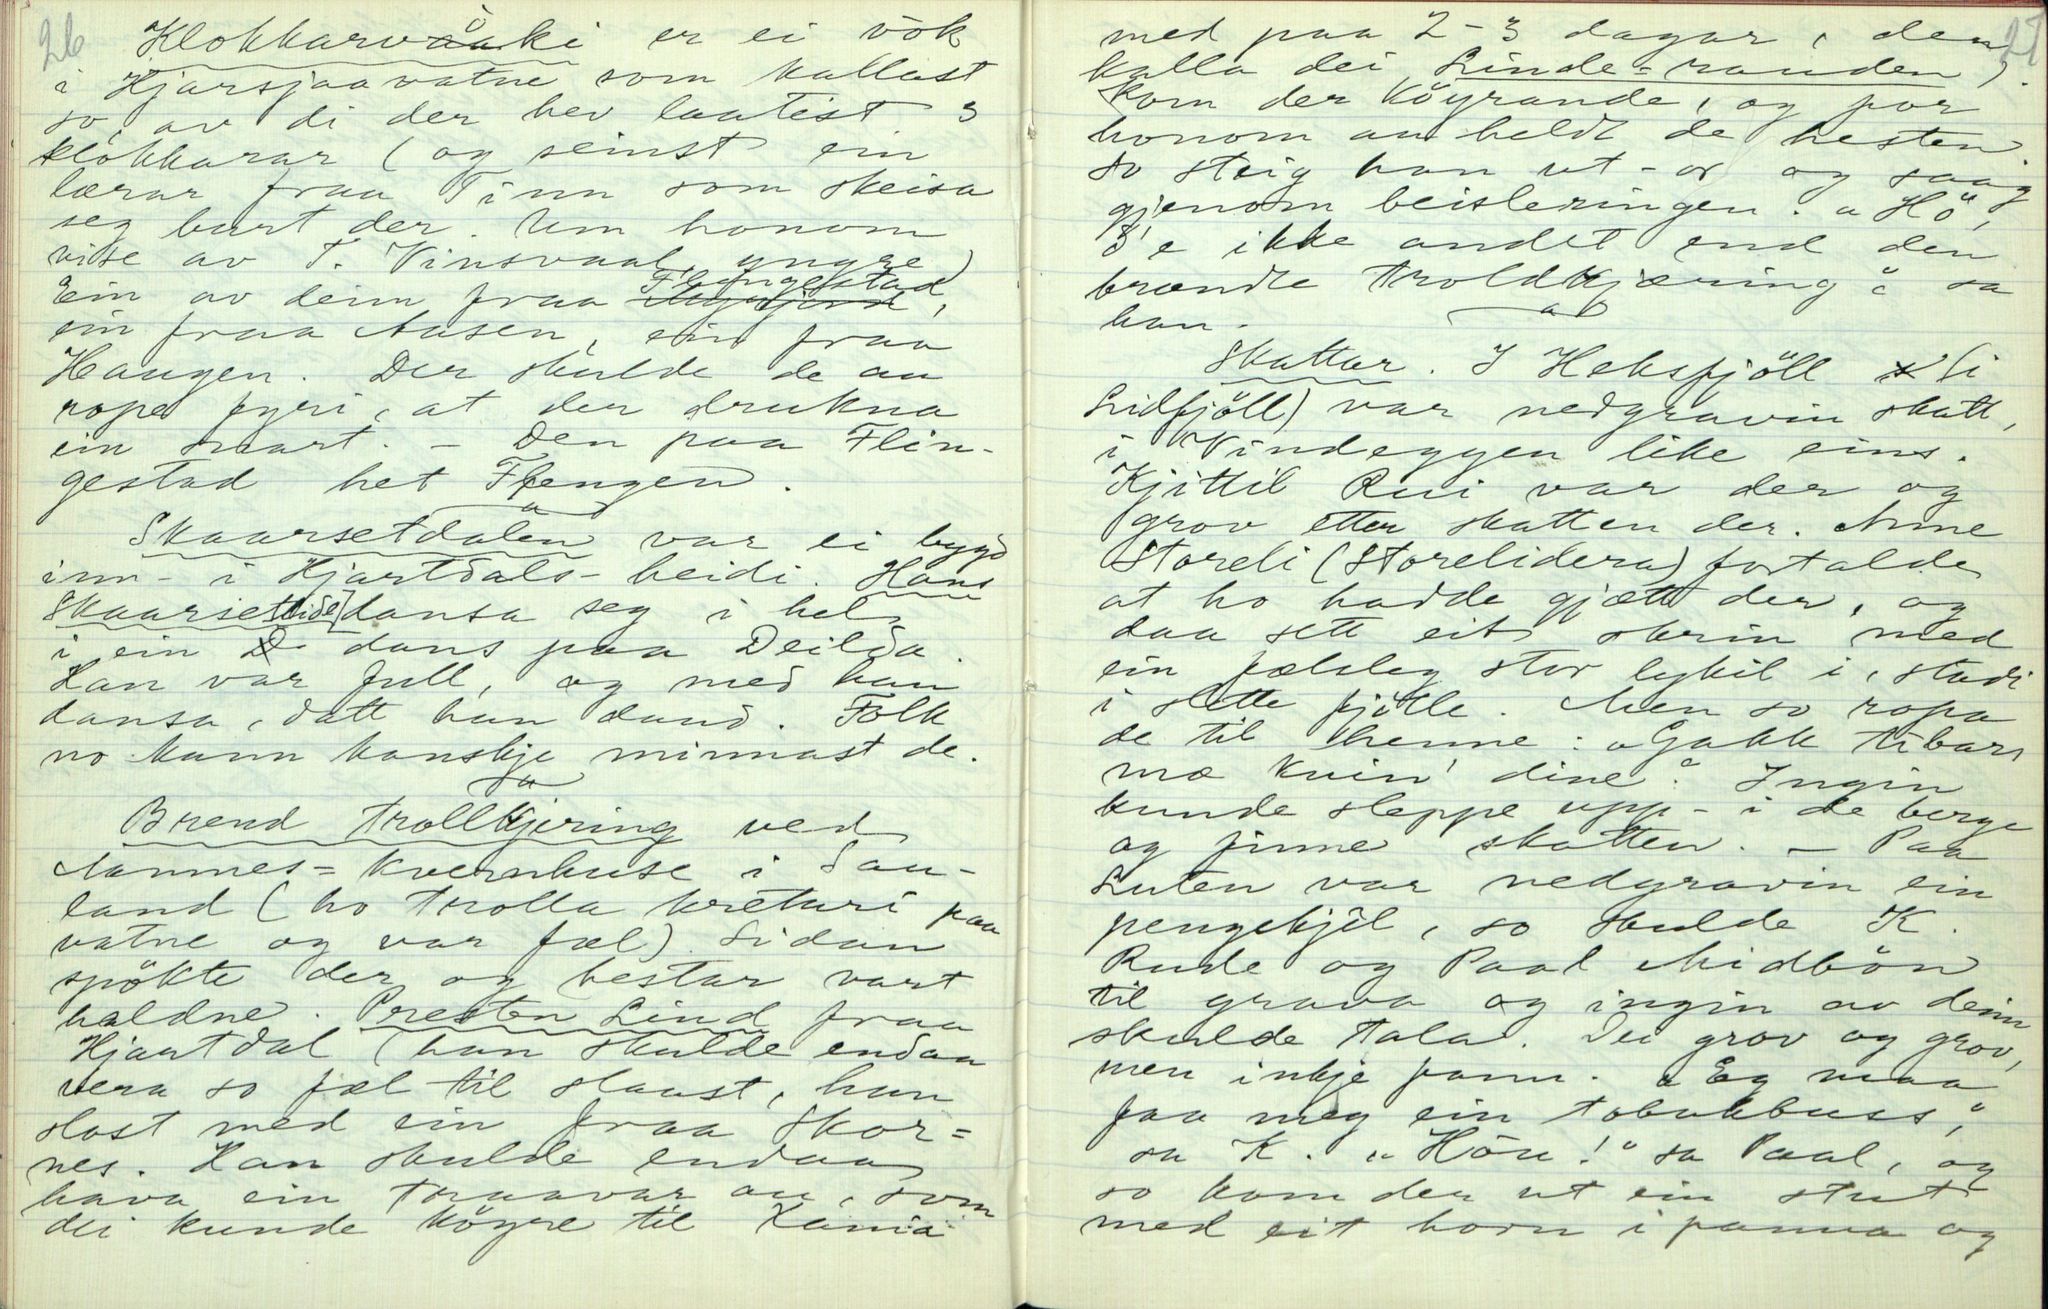 26
Klokkarvöki er ei vök
i Hjarsjaavatne som kallast
so, av di der hev laatist 3
klokkarar (og seinst ein
lærar fraa Tinn som skeisa
seg burt der. Um honom
vise av T. Vinsvaal, yngre)
Ein av deim fraa Flengestad,
ein fraa Aasen, ein fraa
Haugen. Der skulde de au
rope fyri, at der drukna
ein snart. – Den paa Flin-
gestad het Flengen.
Skaarsetdalen var ei bygd
inn-i Hjartdals-heidi. Hans
Skaarsetlide dansa seg i hel
i ein dans paa Deilda.
Han var full, og med han
dansa, datt han daud. Folk
no kann kanskje minnast de.
Brend trollkjering ved
Nannes-kvernhuse i Sau-
land (ho trolla kreturi paa
vatne og var fæl). Sidan
spökte der og hestar vart
haldne. Presten Lind fraa
Hjartdal (han skulde endaa
vera so fæl til slaast, han
slost med ein fraa Skor-
nes. Han skulde endaa
hava ein traavar au, som
dei kunde köyre til Kania
27
med paa 2-3 dagar, den
kalla dei Linde-randen).
kom der köyrande, og for
honom au heldt de hesten.
So steig han ut-or og saag
gjenom beisleringen. "Hö,
d'e ikke andet end den
brændte troldkjæring" sa
han.
Skattar. I Heksfjöll (i
Lidfjöll) var nedgravin skatt,
i Vindeggen like eins.
Kjittil Rui var der og
grov etter skatten der. Anne
Storeli (Storelidera) fortalde
at ho hadde gjætt der, og
daa sett eit skrin med
ein fælsleg stor lykil i, stadi
i slette fjölle. Men so ropa
de til henne: "Gakk tibars
mæ kvin' dine". Ingin
kunde sleppe upp-i de berge
og finne skatten. – Paa
Luten var nedgravin ein
pengekjel, so skulde K.
Rude og Paal Midbön
til grava og ingin av deim
skulde tala. Dei grov og grov,
men inkje fann. "Eg maa
faa meg ein tobakkbuss,"
sa K. "Höu!" sa Paal, og
so kom der ut ein stut
med eit horn i panna og